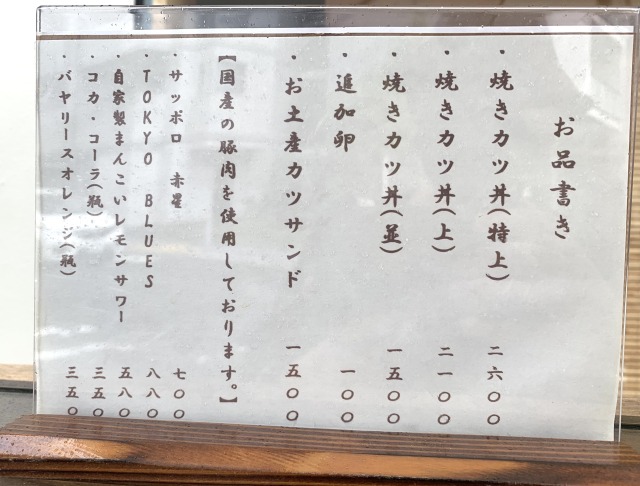 お品書き
・焼きカツ丼(特上) 二六〇〇
・焼きカツ丼(上) 二一〇〇
・焼きカツ丼(並) 一五〇〇
・追加卵 一〇〇
・お土産カツサンド 一五〇〇
【国産の豚肉を使用しております。】
・サッポロ 赤星 七〇〇
・TOKYO BLUES 八八〇
・自家製まんこいレモンサワー 五八〇
・コカ・コーラ(瓶) 三五〇
・バヤリースオレンジ(瓶) 三五〇